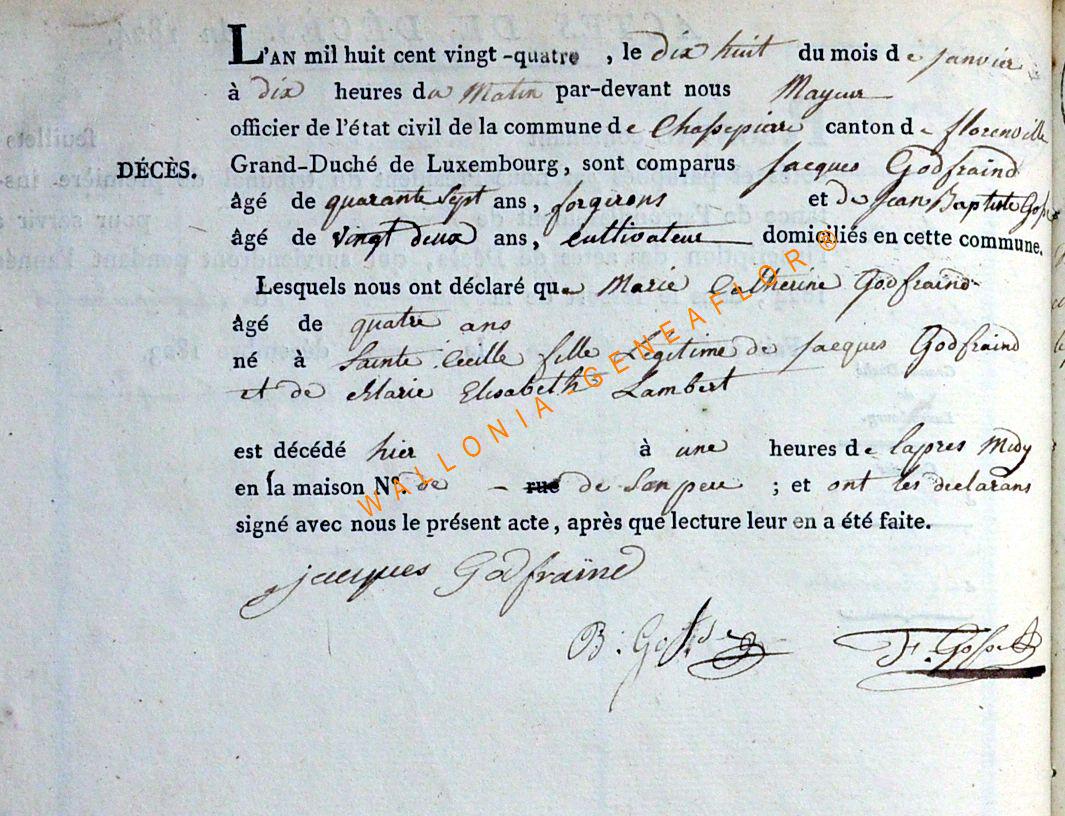 L'AN mil huit cent vingt-quatre, le dix huit du mois de janvier
à dix heures du Matin par-devant nous Mayeur
officier de l'état civil de la commune de Chassepierre canton de florenville
DÉCÈS. Grand-Duché de Luxembourg, sont comparus Jacques Godfraind
âgé de quarante Sept ans, forgirons et de Jean Baptiste
âgé de vingt deux ans, cultivateur domiciliés en cette commune.
Lesquels nous ont déclaré que Marie Catherine Godfraind
âgé de quatre ans
né à Sainte Cecille fille Légitime de jacques Godfraind
et de Marie Elisabeth Lambert
est décédé hier à une heures de lapres Midy
en la maison N°. de - rue de Son pere ; et ont les declarans
signé avec nous le présent acte, après que lecture leur en a été faite.
jacques Godfraine
B. F. Gosset
WALLONIA - GENEAFLOR ®